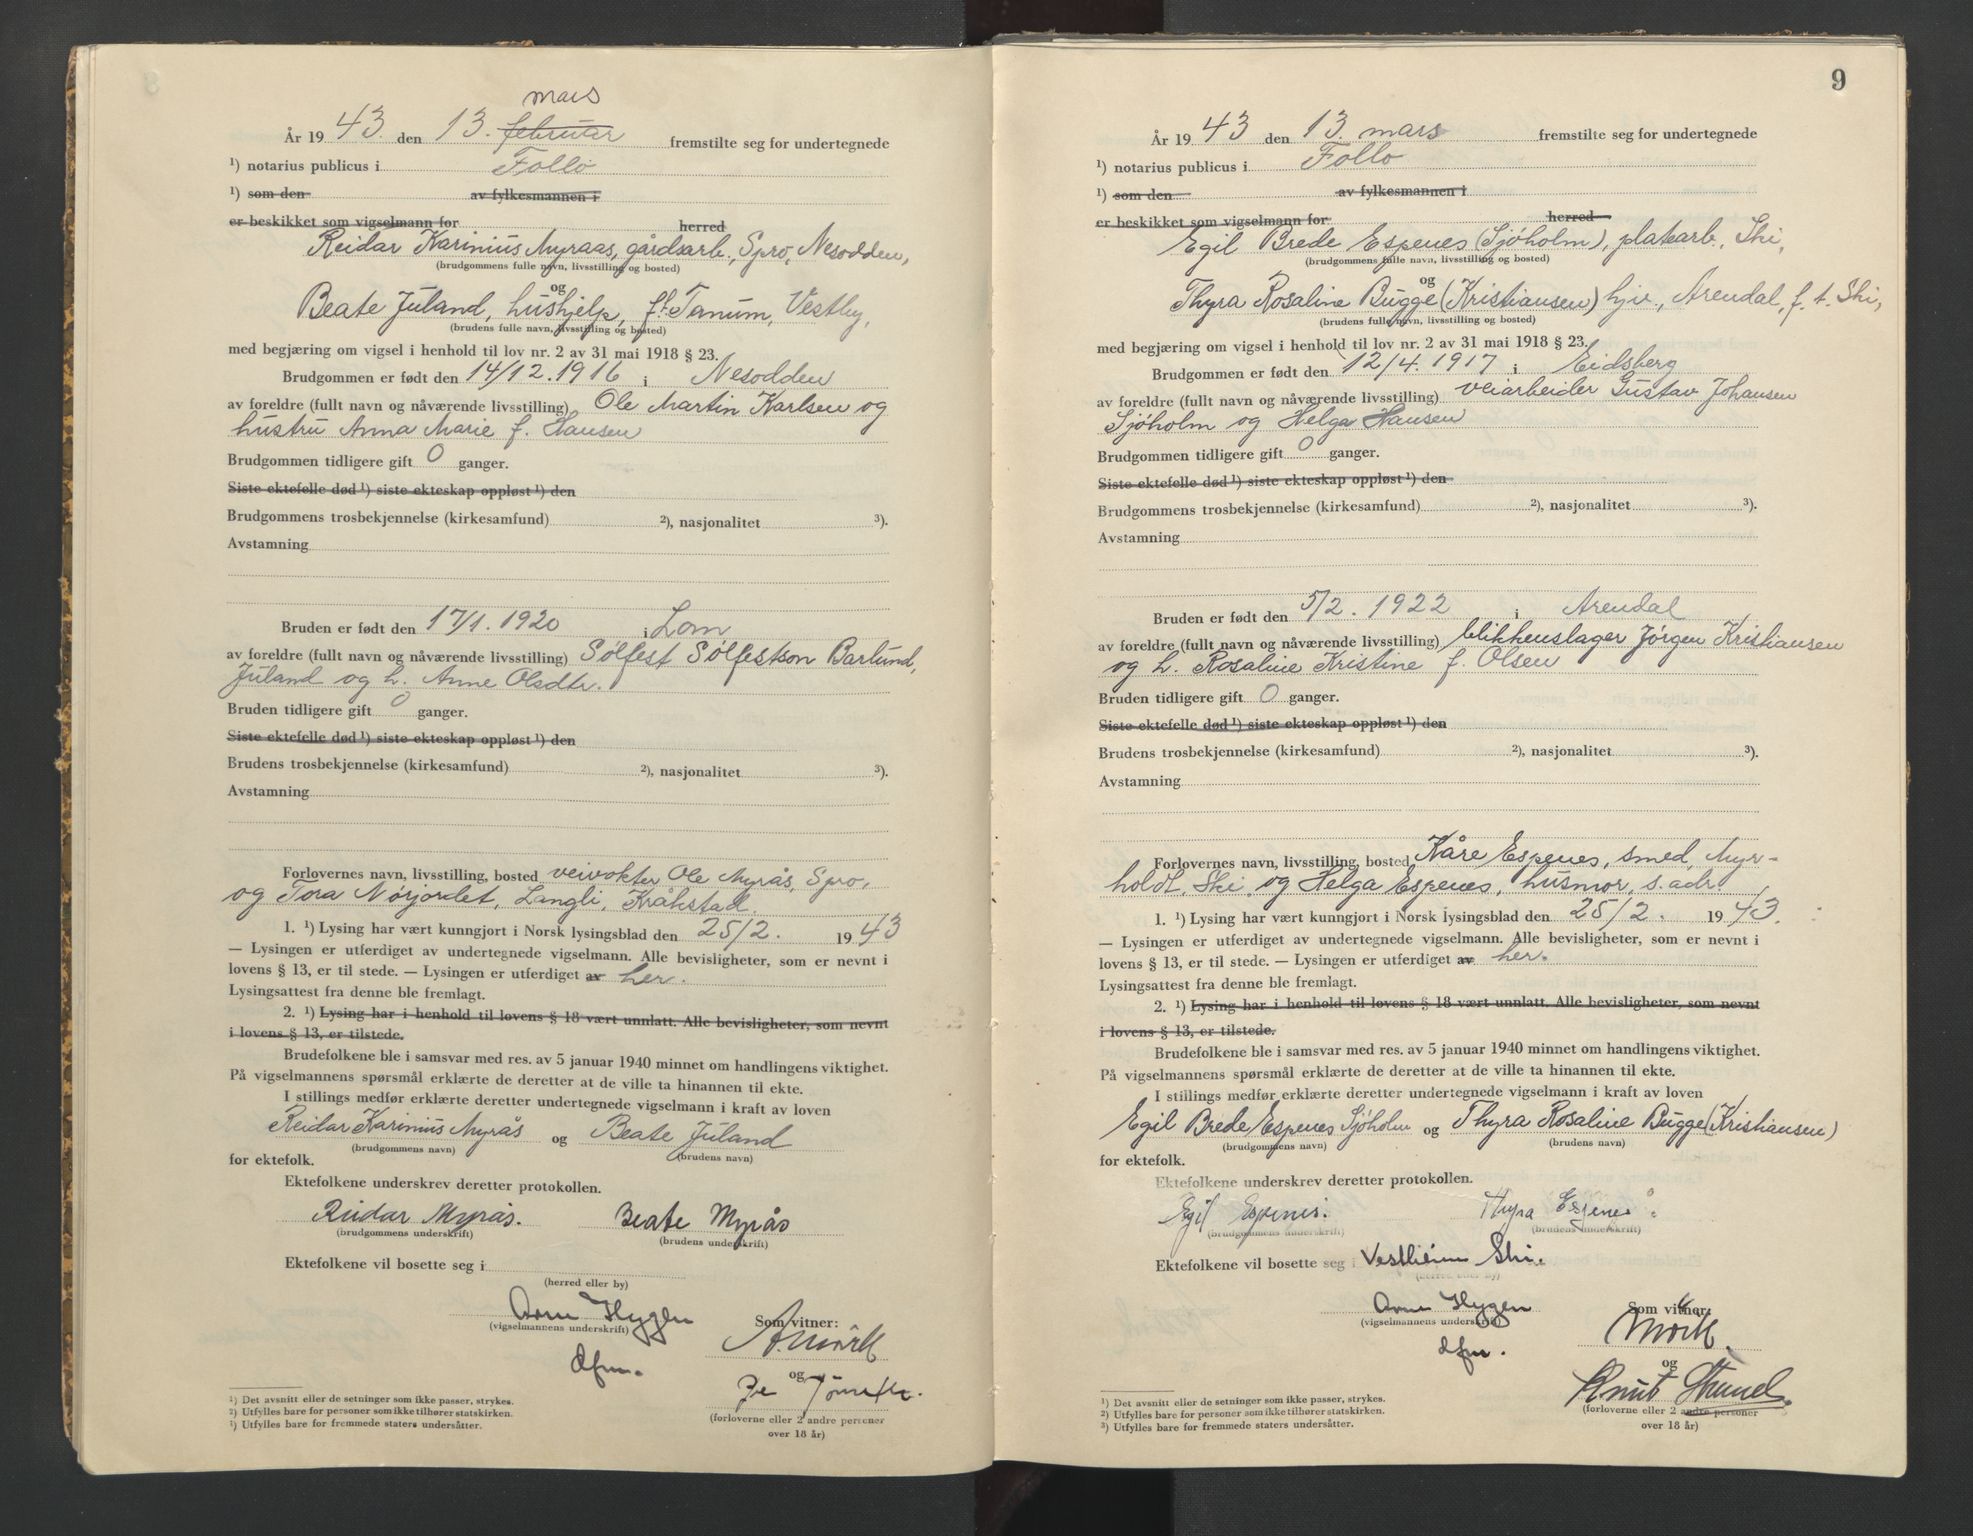 mars
År 19 43. den 13. februar fremstilte seg for undertegnede
¹) notarius publicus i Follo
¹) som den av fylkesmannen i
er beskikket som vigselmann for herred
Reidar Karinius Myraas, gårdsarb., Spro, Nesodden,
(brudgommens fulle navn, livsstilling og bosted)
og
Beate Juland, hushjelp, f.t. Tanum, Vestby,
(brudens fulle navn, livsstilling og bosted)
med begjæring om vigsel i henhold til lov nr. 2 av 31 mai 1918 § 23.
Brudgommen er født den 14/12.1916 i Nesodden
av foreldre (fullt navn og nåværende livsstilling) Ole Martin Karlsen og
hustru Anna Marie f. Hansen
Brudgommen tidligere gift 0 ganger.
Siste ektefelle død ¹) siste ekteskap oppløst ¹) den
Brudgommens trosbekjennelse (kirkesamfund) ²), nasjonalitet ³).
Avstamning
Bruden er født den 17/1. 1920 i Lom
av foreldre (fullt navn og nåværende livsstilling) Sølfest Sølfestson Barlund,
Juland og h. Anne Olsdtr.
Bruden tidligere gift 0 ganger.
Siste ektefelle død ¹) siste ekteskap oppløst ¹) den
Brudens trosbekjennelse (kirkesamfund) ²), nasjonalitet ³).
Avstamning
Forlovernes navn, livsstilling, bosted veivokter Ole Myrås, Spro,
og Tora Nørjordet, Langli, Kråkstad
1. ¹) Lysing har vært kunngjort i Norsk lysingsblad den 25/2. 19 43
— Lysingen er utferdiget av undertegnede vigselmann. Alle bevisligheter, som er nevnt i
lovens § 13, er til stede. — Lysingen er utferdiget av her.
Lysingsattest fra denne ble fremlagt.
2. ¹) Lysing har i henhold til lovens § 18 vært unnlatt. Alle bevisligheter, som nevnt
i lovens § 13, er tilstede.
Brudefolkene ble i samsvar med res. av 5 januar 1940 minnet om handlingens viktighet.
På vigselmannens spørsmål erklærte de deretter at de ville ta hinannen til ekte.
I stillings medfør erklærte deretter undertegnede vigselmann i kraft av loven
Reidar Karinius Myrås og Beate Juland
(brudgommens navn) (brudens navn)
for ektefolk.
Ektefolkene underskrev deretter protokollen.
Reidar Myrås. Beate Myrås
(brudgommens underskrift) (brudens underskrift)
Ektefolkene vil bosette seg i
(herred eller by)
Arne Hygen
(vigselmannens underskrift)
dfm.
Som vitner:
og
(forloverne eller 2 andre personer
over 18 år)
¹) Det avsnitt eller de setninger som ikke passer, strykes.
²) Utfylles bare for personer som ikke tilhører statskirken.
³) Utfylles bare for fremmede staters undersåtter.
9
År 19 43 den 13. mars fremstilte seg for undertegnede
¹) notarius publicus i Follo
¹) som den av fylkesmannen i
er beskikket som vigselmann for herred
Egil Brede Espenes (Sjøholm), platearb., Ski,
(brudgommens fulle navn, livsstilling og bosted)
og
Thyra Rosaline Bugge (Kristiansen) hjv., Arendal, f.t. Ski,
(brudens fulle navn, livsstilling og bosted)
med begjæring om vigsel i henhold til lov nr. 2 av 31 mai 1918 § 23.
Brudgommen er født den 12/4. 1917 i Eidsberg
av foreldre (fullt navn og nåværende livsstilling) veiarbeider Gustav Johansen
Sjøholm og Helga Hansen
Brudgommen tidligere gift 0 ganger.
Siste ektefelle død ¹) siste ekteskap oppløst ¹) den
Brudgommens trosbekjennelse (kirkesamfund) ²), nasjonalitet ³).
Avstamning
Bruden er født den 5/2. 1922 i Arendal
av foreldre (fullt navn og nåværende livsstilling) blikkenslager Jørgen Kristiansen
og h. Rosaline Kristine f. Olsen
Bruden tidligere gift 0 ganger.
Siste ektefelle død ¹) siste ekteskap oppløst ¹) den
Brudens trosbekjennelse (kirkesamfund) ²), nasjonalitet ³).
Avstamning
Forlovernes navn, livsstilling, bosted Kåre Espenes, smed, Myr-
holdt, Ski, og Helga Espenes, husmor, s. adr.
1. ¹) Lysing har vært kunngjort i Norsk lysingsblad den 25/2. 19 43.
— Lysingen er utferdiget av undertegnede vigselmann. Alle bevisligheter, som er nevnt i
lovens § 13, er til stede. — Lysingen er utferdiget av her.
Lysingsattest fra denne ble fremlagt.
2. ¹) Lysing har i henhold til lovens § 18 vært unnlatt. Alle bevisligheter, som nevnt
i lovens § 13, er tilstede.
Brudefolkene ble i samsvar med res. av 5 januar 1940 minnet om handlingens viktighet.
På vigselmannens spørsmål erklærte de deretter at de ville ta hinannen til ekte.
I stillings medfør erklærte deretter undertegnede vigselmann i kraft av loven
Egil Brede Espenes Sjöholm og Thyra Rosaline Bugge (Kristiansen)
(brudgommens navn) (brudens navn)
for ektefolk.
Ektefolkene underskrev deretter protokollen.
Egil Espenes. Thyra Espenes
(brudgommens underskrift) (brudens underskrift)
Ektefolkene vil bosette seg i Vestheim Ski.
(herred eller by)
Arne Hygen
(vigselmannens underskrift)
dfm.
Som vitner:
og
Knut
(forloverne eller 2 andre personer
over 18 år)
¹) Det avsnitt eller de setninger som ikke passer, strykes.
²) Utfylles bare for personer som ikke tilhører statskirken.
³) Utfylles bare for fremmede staters undersåtter.